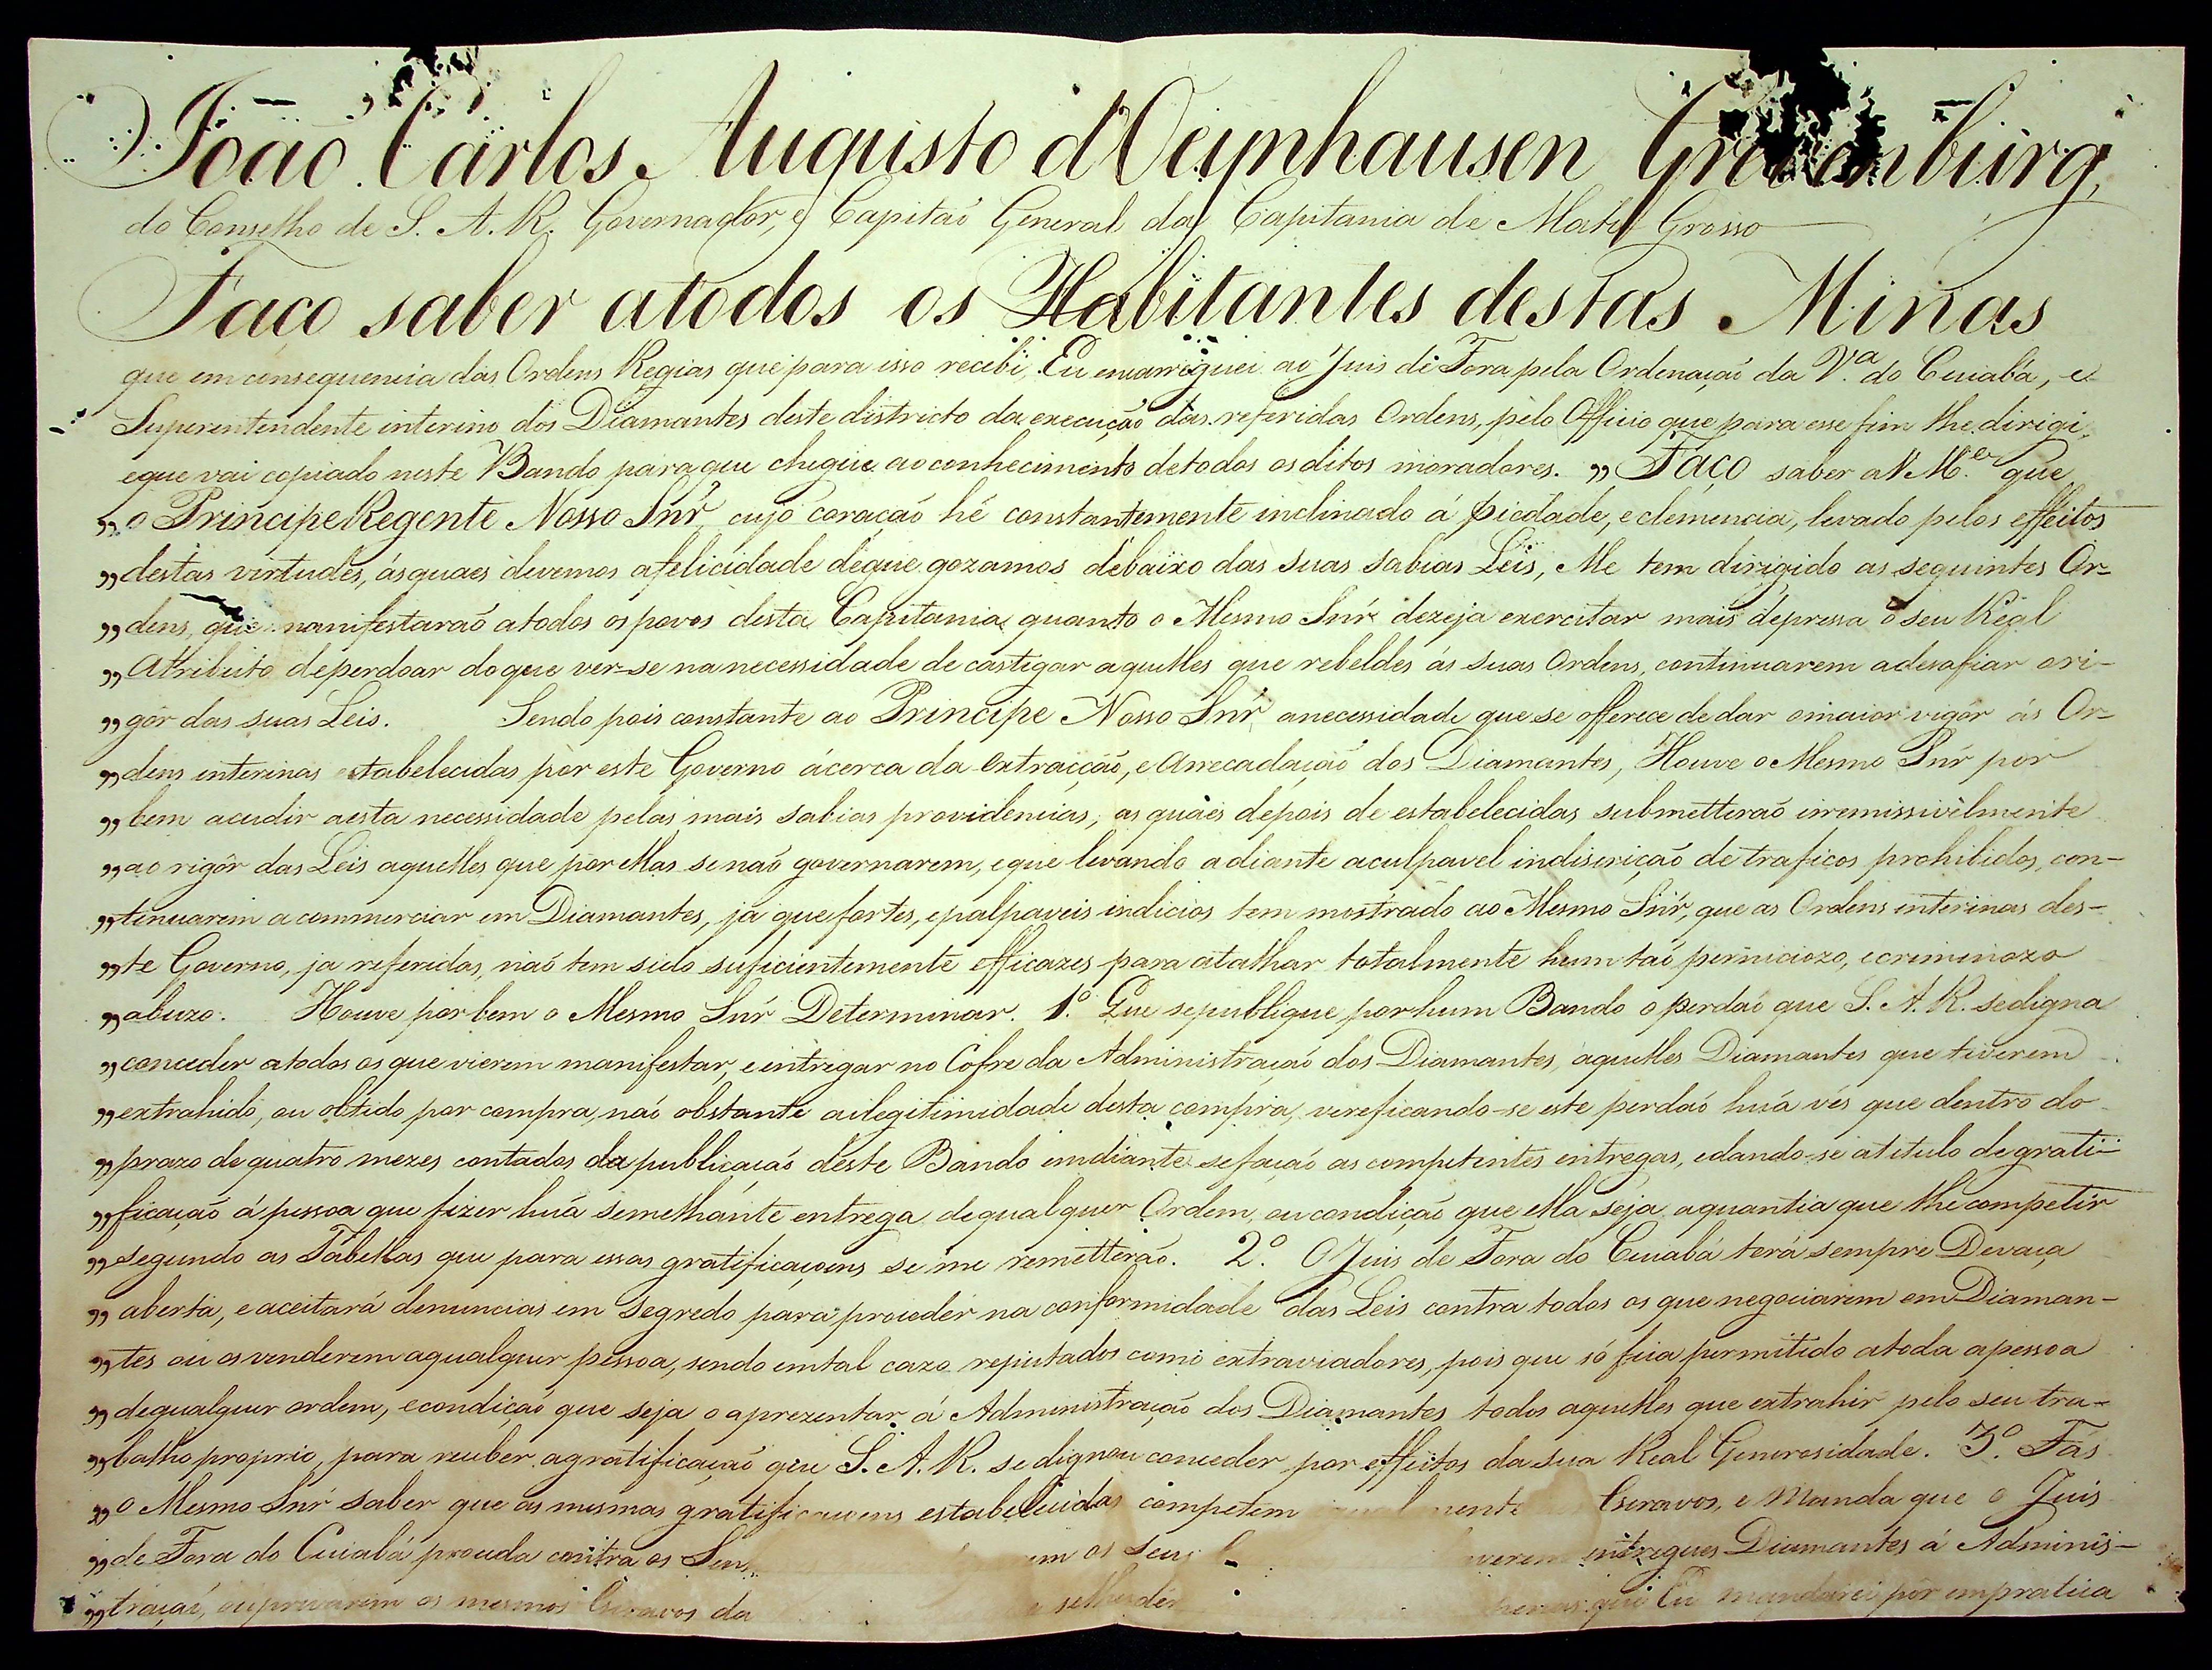 João Carlos Augusto d'Oeynhausen Grevenburg,
do Conselho de S. A. R. Governador, e Capitaõ General da Capitania de Mato Grosso
Faço saber atodos os Habitantes destas Minas
que em consequencia das Ordens Regias que para isso recibi, Eu encarreguei ao Juis de Fora pela Ordenaçaõ da V.ª do Cuiabá, e
Superentendente interino dos Diamantes deste districto da execuçaõ das referidas Ordens, pelo Officio que para esse fim lhe dirigi,
eque vai copiado neste Bando para que chegue ao conhecimento detodos os ditos moradores. „ Faço saber a V M.ce que
„ o Principe Regente Nosso Snr̃, cujo coraçaõ hé constantemente inclinado á piedade, e clemencia, levado pelos effeitos
„ destas virtudes, ás quaes devemos afelicidade deque gozamos debaixo das suas sabias Leis, Me tem dirigido as seguintes Or-
„ dens, que manifestaraõ atodos os povos desta Capitania quanto o Mesmo Snr̃ dezeja exercitar mais depressa o seu Real
„ Atributo deperdoar doque ver-se na necessidade de castigar aquelles que rebeldes ás suas Ordens, continuarem adesafiar ori-
„ gôr das suas Leis. Sendo pois constante ao Principe Nosso Snr̃ anecessidade que se offerece de dar omaior vigôr ás Or-
„ dens interinas estabelecidas por este Governo ácerca da extracçaõ, e Arrecadaçaõ dos Diamantes, Houve o Mesmo Snr̃ por
„ bem acudir aesta necessidade pelas mais sabias providencias, as quaes depois de estabelecidas submetteraõ irremissivelmente
„ ao rigôr das Leis aquelles que por ellas se naõ governarem, eque levando adiante aculpavel indiscriçaõ de traficos prohibidos, con-
„ tinuarem acommerciar em Diamantes, já que fortes, epalpaveis indicios tem mostrado ao Mesmo Snr̃, que as Ordens interinas des-
„ te Governo, ja referidas, naõ tem sido suficientemente efficazes para atalhar totalmente hum taõ perniciozo, ecriminozo
„ abuzo. Houve por bem o Mesmo Snr̃ Determinar. 1.º Que sepublique por hum Bando o perdaõ que S. A. R. sedigna
„ conceder atodos os que vierem manifestar, e intregar no Cofre da Administraçaõ dos Diamantes, aquelles Diamantes que tiverem
„ extrahido, ou obtido por compra, naõ obstante ailegitimidade desta compra, vereficando-se este perdaõ huã vês que dentro do
„ prazo de quatro mezes contados da publicaçaõ deste Bando emdiante sefaçaõ as competentes entregas, edando-se atitulo degrati-
„ ficaçaõ á pessoa que fizer huã semelhante entrega, dequalquer Ordem, ou condiçaõ que ella seja aquantia que lhe competir
„ segundo as Tabellas que para essas gratificaçoens se me remetteraõ. 2.º O Juis de Fora do Cuiabá terá sempre Devaça
„ aberta, e aceitará denuncias em segredo para proceder na conformidade das Leis contra todos os que negociarem em Diaman-
„ tes ou os venderem aqualquer pessoa, sendo emtal cazo reputados como extraviadores, pois que só fica permitido atoda apessoa
„ dequalquer ordem, econdiçaõ que seja o aprezentar á Administraçaõ dos Diamantes todos aquelles que extrahir pelo seu tra-
„ balho proprio, para receber agratificaçaõ que S. A. R. se dignou conceder por effeitos da sua Real Generosidade. 3.º Fás
„ o Mesmo Snr̃ saber que as mesmas gratificaçoens estabelecidas competem Escravos, e Manda que o Juis
„ de Fora do Cuiabá proceda contra os os seus intregues Diamantes á Adminis-
„ traçaõ, ou privarem os mesmos Escravos da que Eu mandarei pôr empratica